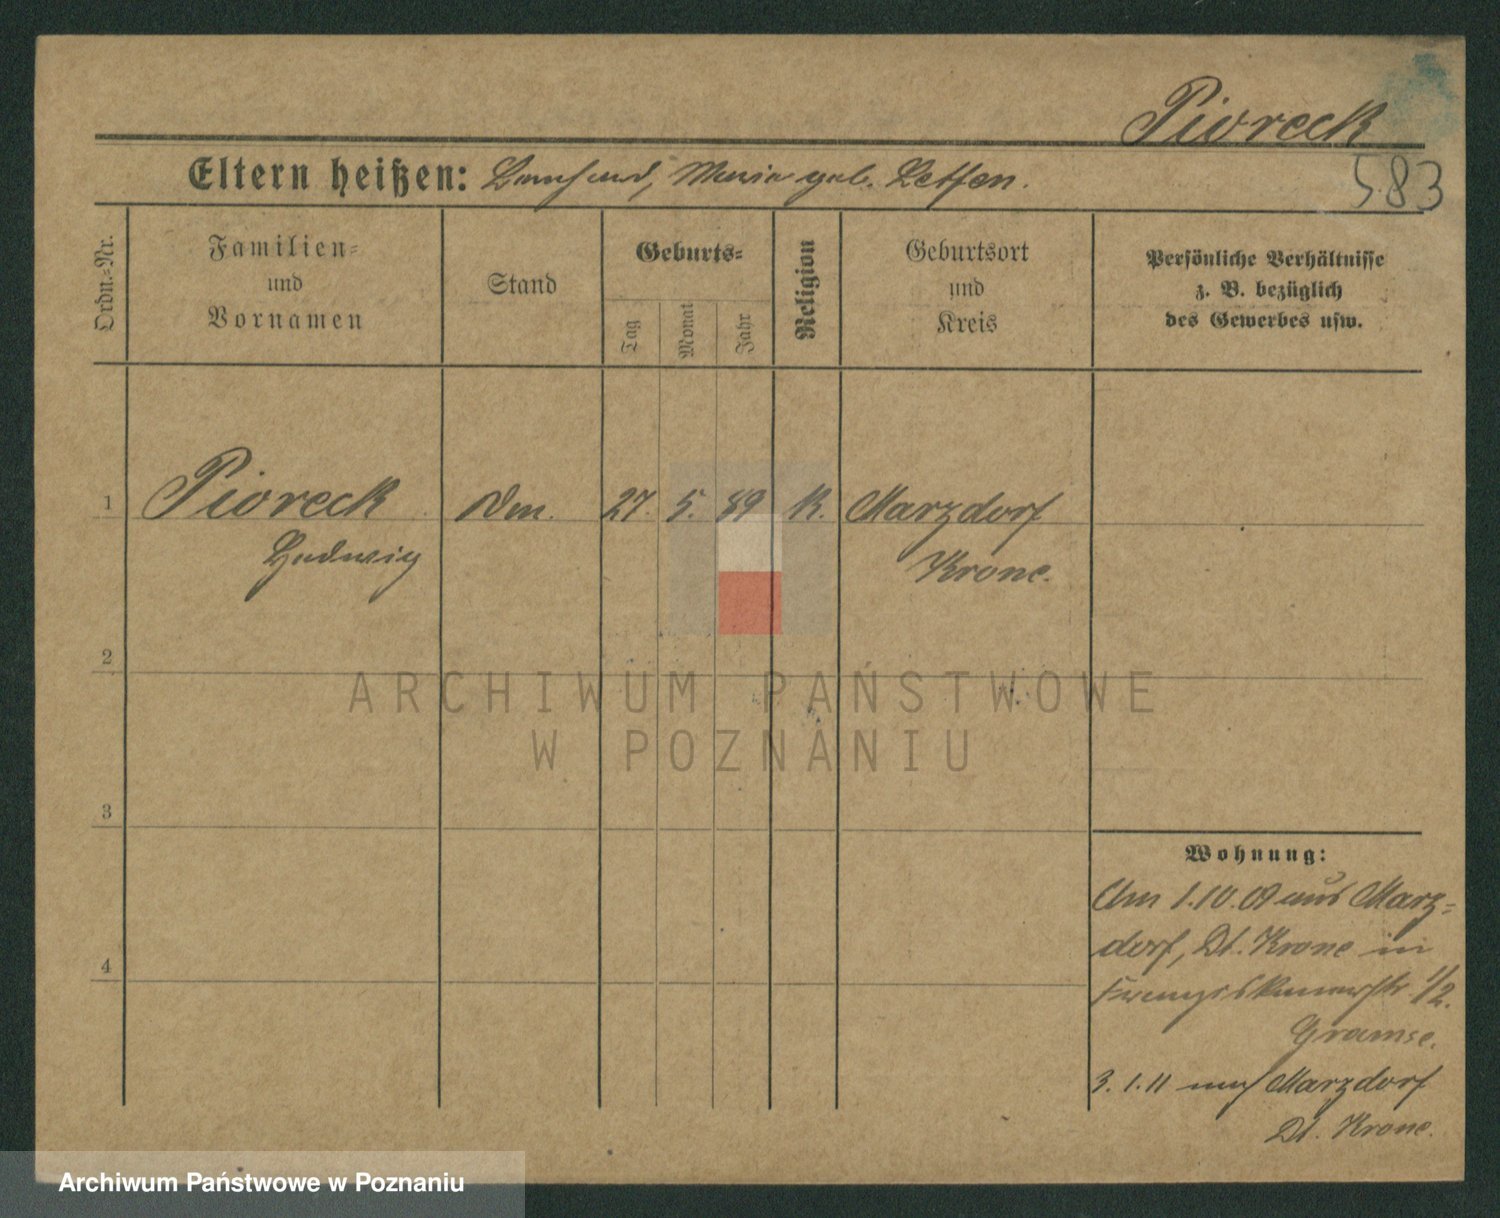 Pioreck
583
Eltern heißen: Bernhard, Maria geb.
Ordn.-Nr.
Familien-
und
Vornamen
Stand
Geburts-
Tag
Monat
Jahr
Religion
Geburtsort
und
Kreis
Persönliche Verhältnisse
z. B. bezüglich
des Gewerbes usw.
1 Pioreck 27. 5. 89 K. Marzdorf
Hedwig Krone.
2
3
4
Wohnung:
Am 1.10.09 aus Marz-
dorf, Dt. Krone in
Franziskanerstr. 1/2.
Gramse.
3.1.11 nach Marzdorf
Dt. Krone.
ARCHIWUM PAŃSTWOWE
W POZNANIU
Archiwum Państwowe w Poznaniu